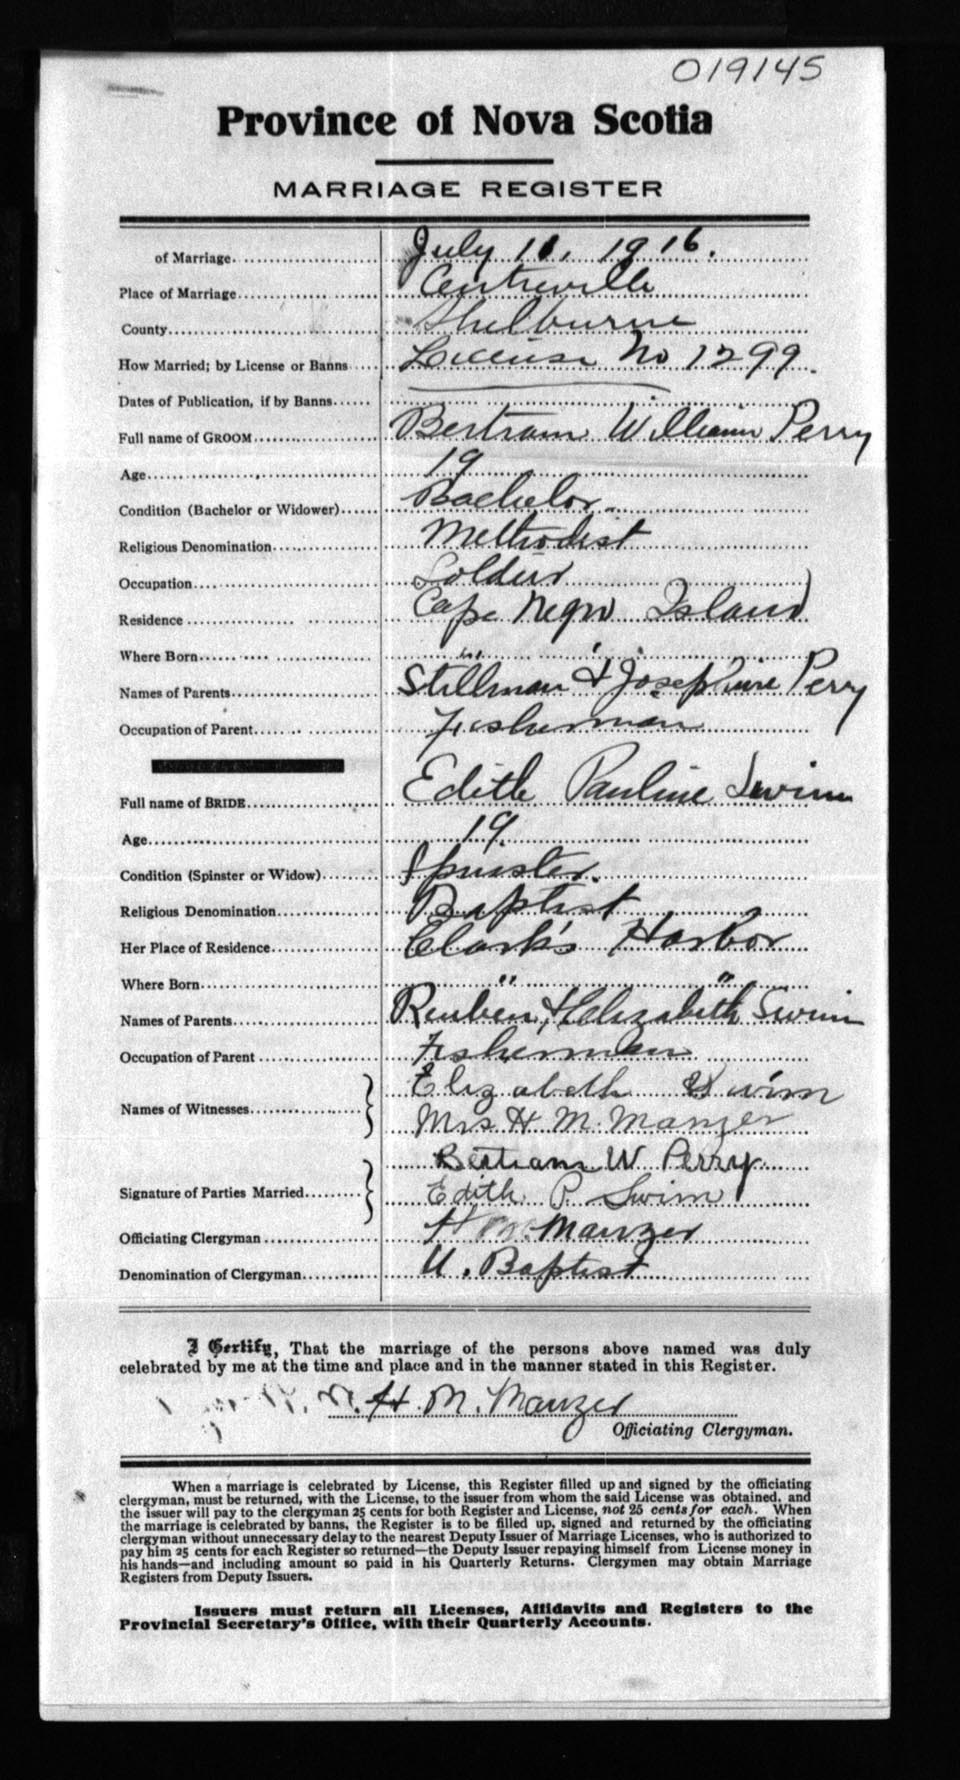 019145
Province of Nova Scotia
MARRIAGE REGISTER
of Marriage July 11, 1916.
Place of Marriage Centreville
County Shelburne
How Married; by License or Banns License No 1299.
Dates of Publication, if by Banns
Full name of GROOM Bertram William Perry
Age 19
Condition (Bachelor or Widower) Bachelor.
Religious Denomination Methodist
Occupation Soldier
Residence Cape Negro Island
Where Born " "
Names of Parents Stillman & Josephine Perry
Occupation of Parent Fisherman
Full name of BRIDE Edith Pauline Swim
Age 19.
Condition (Spinster or Widow) Spinster.
Religious Denomination Baptist
Her Place of Residence Clark's Harbor
Where Born " "
Names of Parents Reuben & Elizabeth Swim
Occupation of Parent Fisherman
Names of Witnesses Elizabeth Swim
Mrs H M. Manzer
Signature of Parties Married Bertram W Perry
Edith P. Swim
Officiating Clergyman H M. Manzer
Denomination of Clergyman U. Baptist
I Certify, That the marriage of the persons above named was duly
celebrated by me at the time and place and in the manner stated in this Register.
H. M. Manzer
Officiating Clergyman.
When a marriage is celebrated by License, this Register filled up and signed by the officiating
clergyman, must be returned, with the License, to the issuer from whom the said License was obtained, and
the issuer will pay to the clergyman 25 cents for both Register and License, not 25 cents for each. When
the marriage is celebrated by banns, the Register is to be filled up, signed and returned by the officiating
clergyman without unnecessary delay to the nearest Deputy Issuer of Marriage Licenses, who is authorized to
pay him 25 cents for each Register so returned—the Deputy Issuer repaying himself from License money in
his hands—and including amount so paid in his Quarterly Returns. Clergymen may obtain Marriage
Registers from Deputy Issuers.
Issuers must return all Licenses, Affidavits and Registers to the
Provincial Secretary's Office, with their Quarterly Accounts.